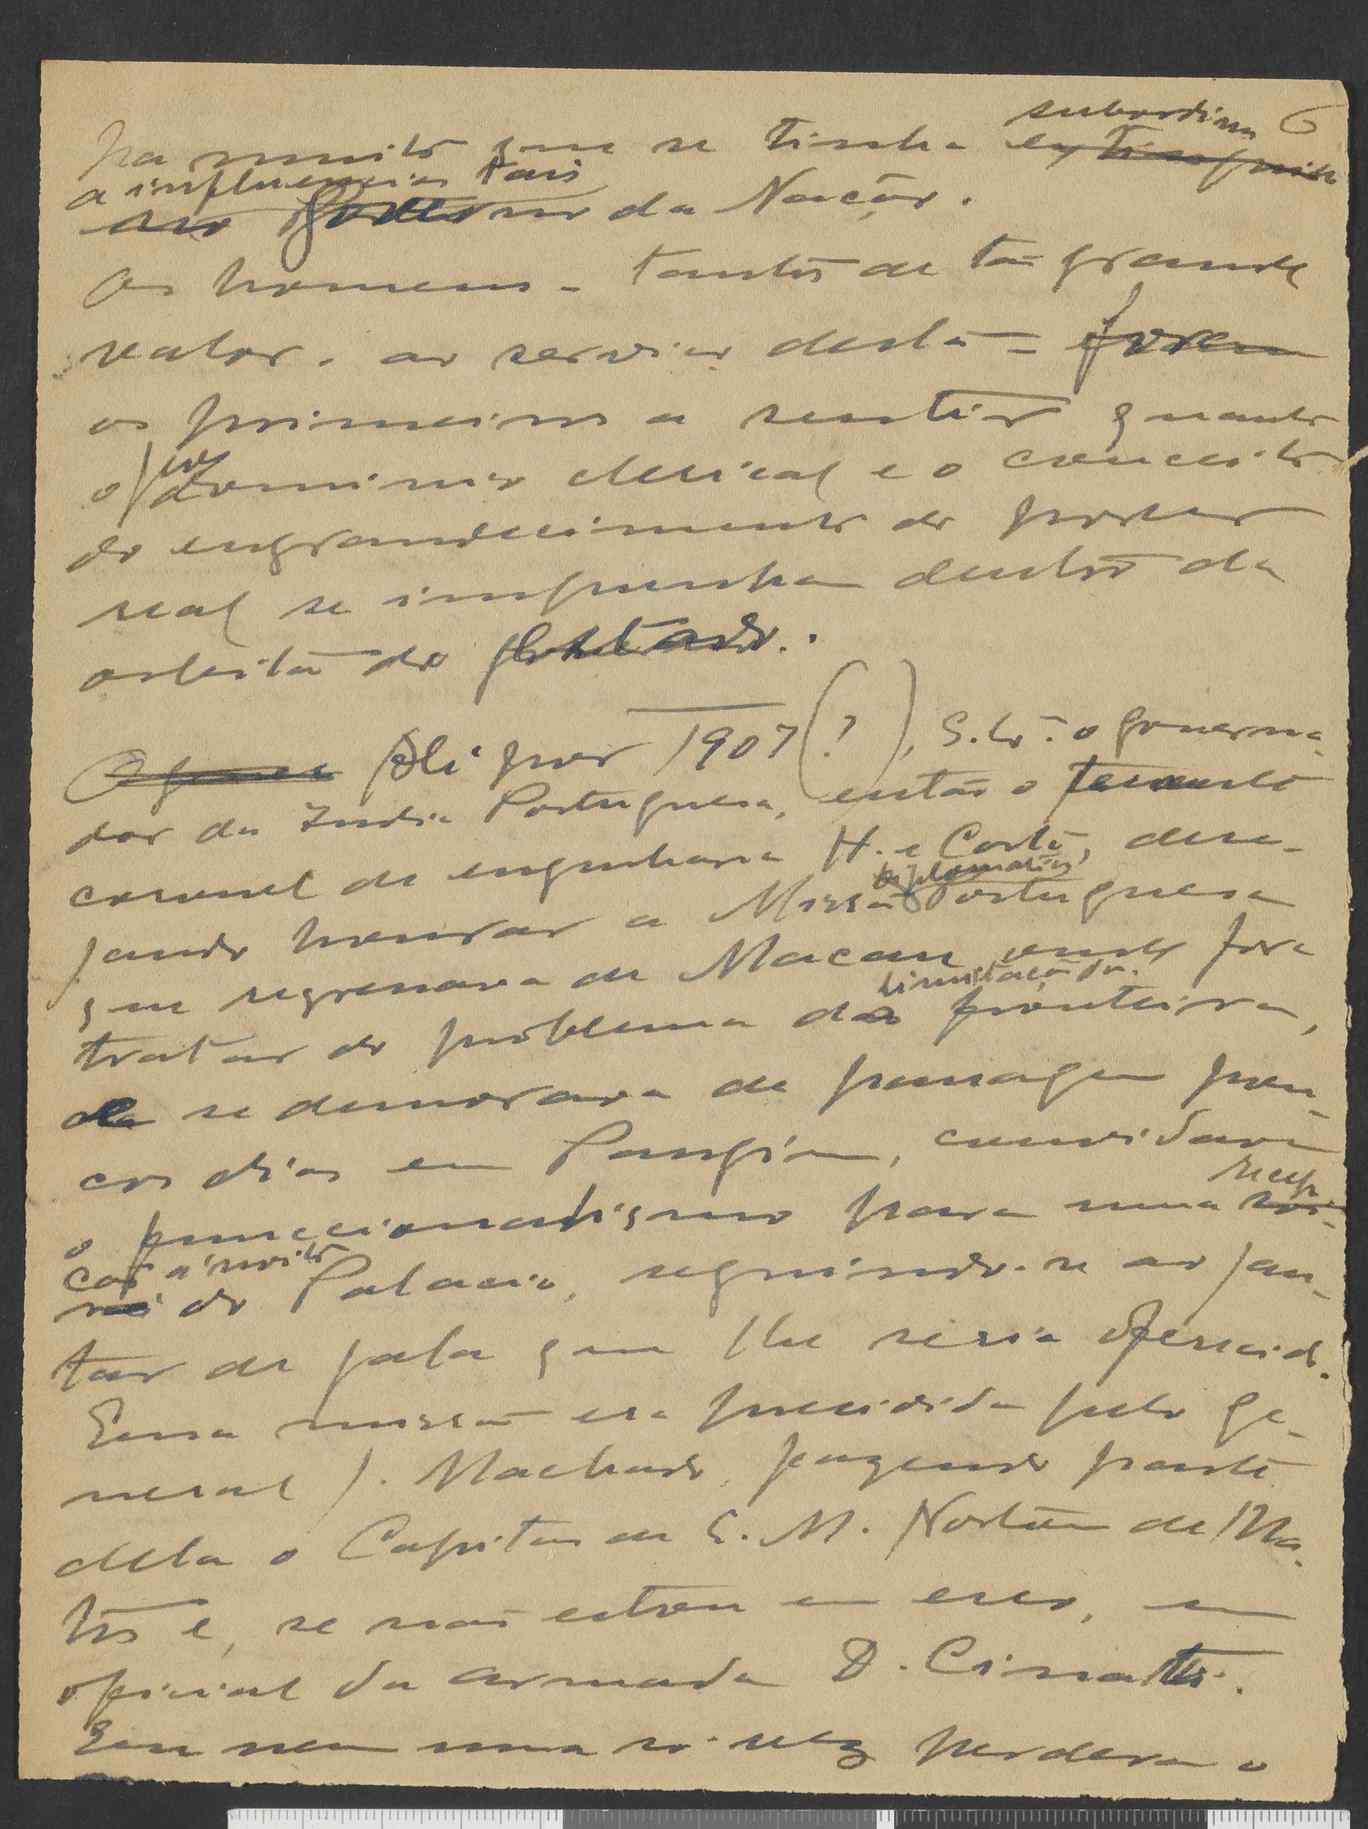 6
ha muito que se tinha subordina
a influencias tais
ao Governo da Nação.
Os homens - tantos de tão grande
valor, ao serviço desta -
os primeiros a sentir quanto
o dominio clerical e o conceito
do engrandecimento do poder
real se impunha dentro da
orbita do
Ali por 1907 (?), S. Ex.ª o governa-
dor da India Portuguesa, então o tenente
coronel de engenharia H. e Costa, dese-
jando honrar a Missão diplomatica Portuguesa
que regressava de Macau onde fora
tratar do problema da limitação da fronteira,
e se demorava de passagem pou-
cos dias em Pangim, convidara
o funccionalismo para uma recep-
cão á noite do Palacio, seguindo-se ao jan-
tar de gala que lhe seria oferecido.
Essa missão era presidida pelo ge-
neral J. Machado, fazendo parte
dela o Capitão de E. M. Norton de Ma-
tos e, se não estou em erro, um
oficial da armada D. Cinatti.
Eu nem uma só vez perdera o